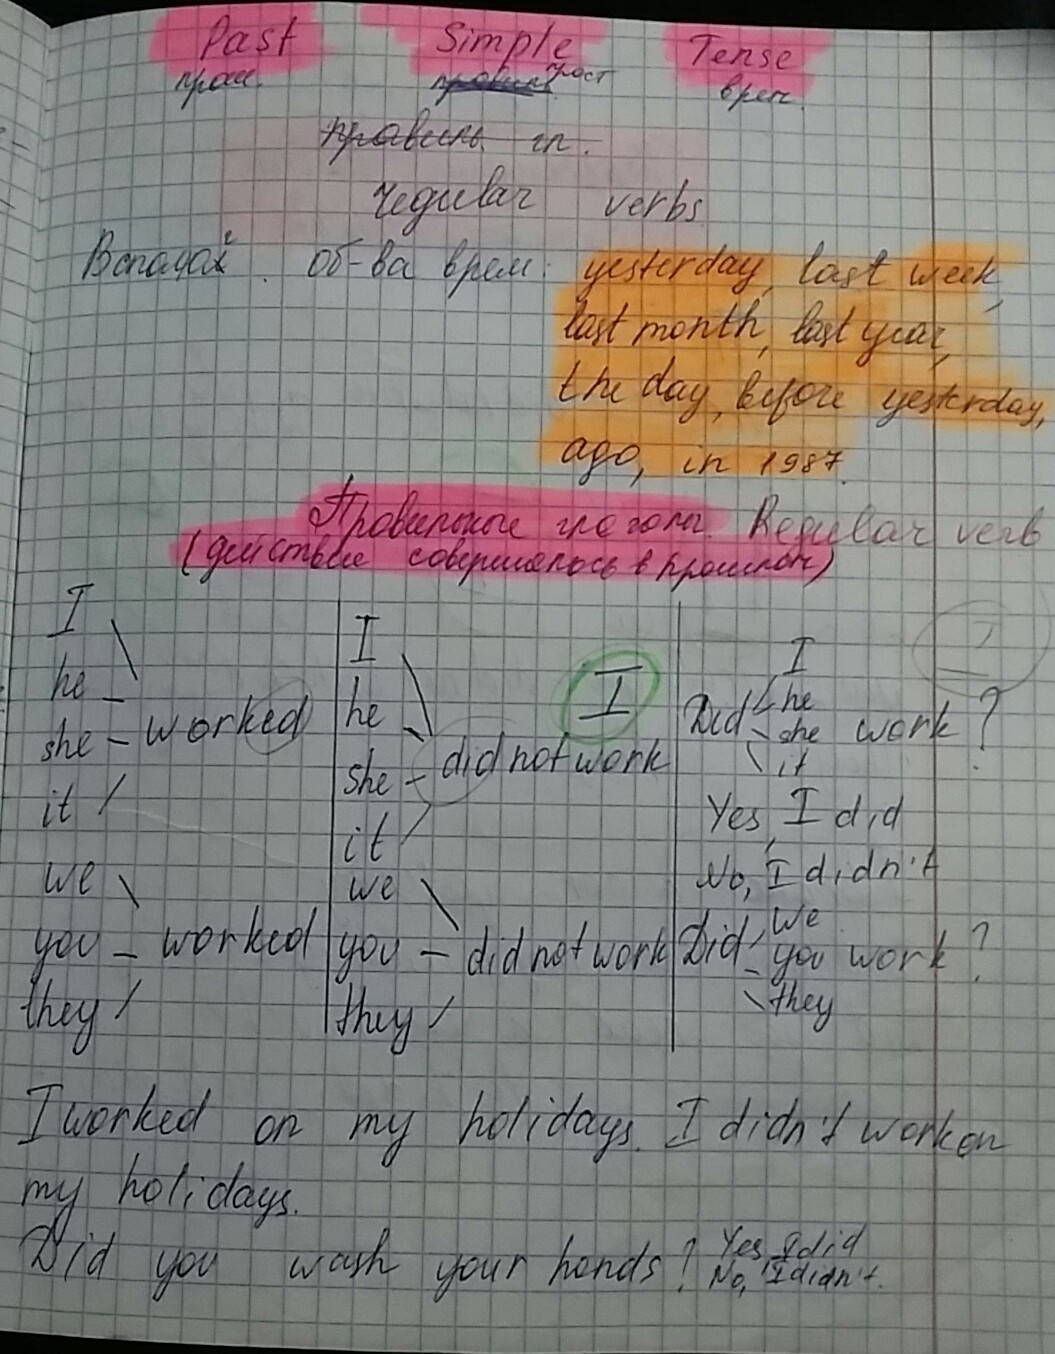 Past Simple Tense
прош. прост врем.
правильн. гл.
regular verbs
об-ва врем: yesterday, last week,
last month, last year,
the day, before yesterday,
ago, in 1987.
Правильные глаголы. Regular verb
(действие совершалось в прошлом)
I
he
she – worked
it
we
you – worked
they
I
he
she – did not work
it
we
you – did not work
they
I
I
Did he
she work?
it
Yes, I did
No, I didn't
we
Did you work?
they
I
I worked on my holidays. I didn't work on
my holidays.
Did you wash your hands? Yes, I did
No, I didn't.